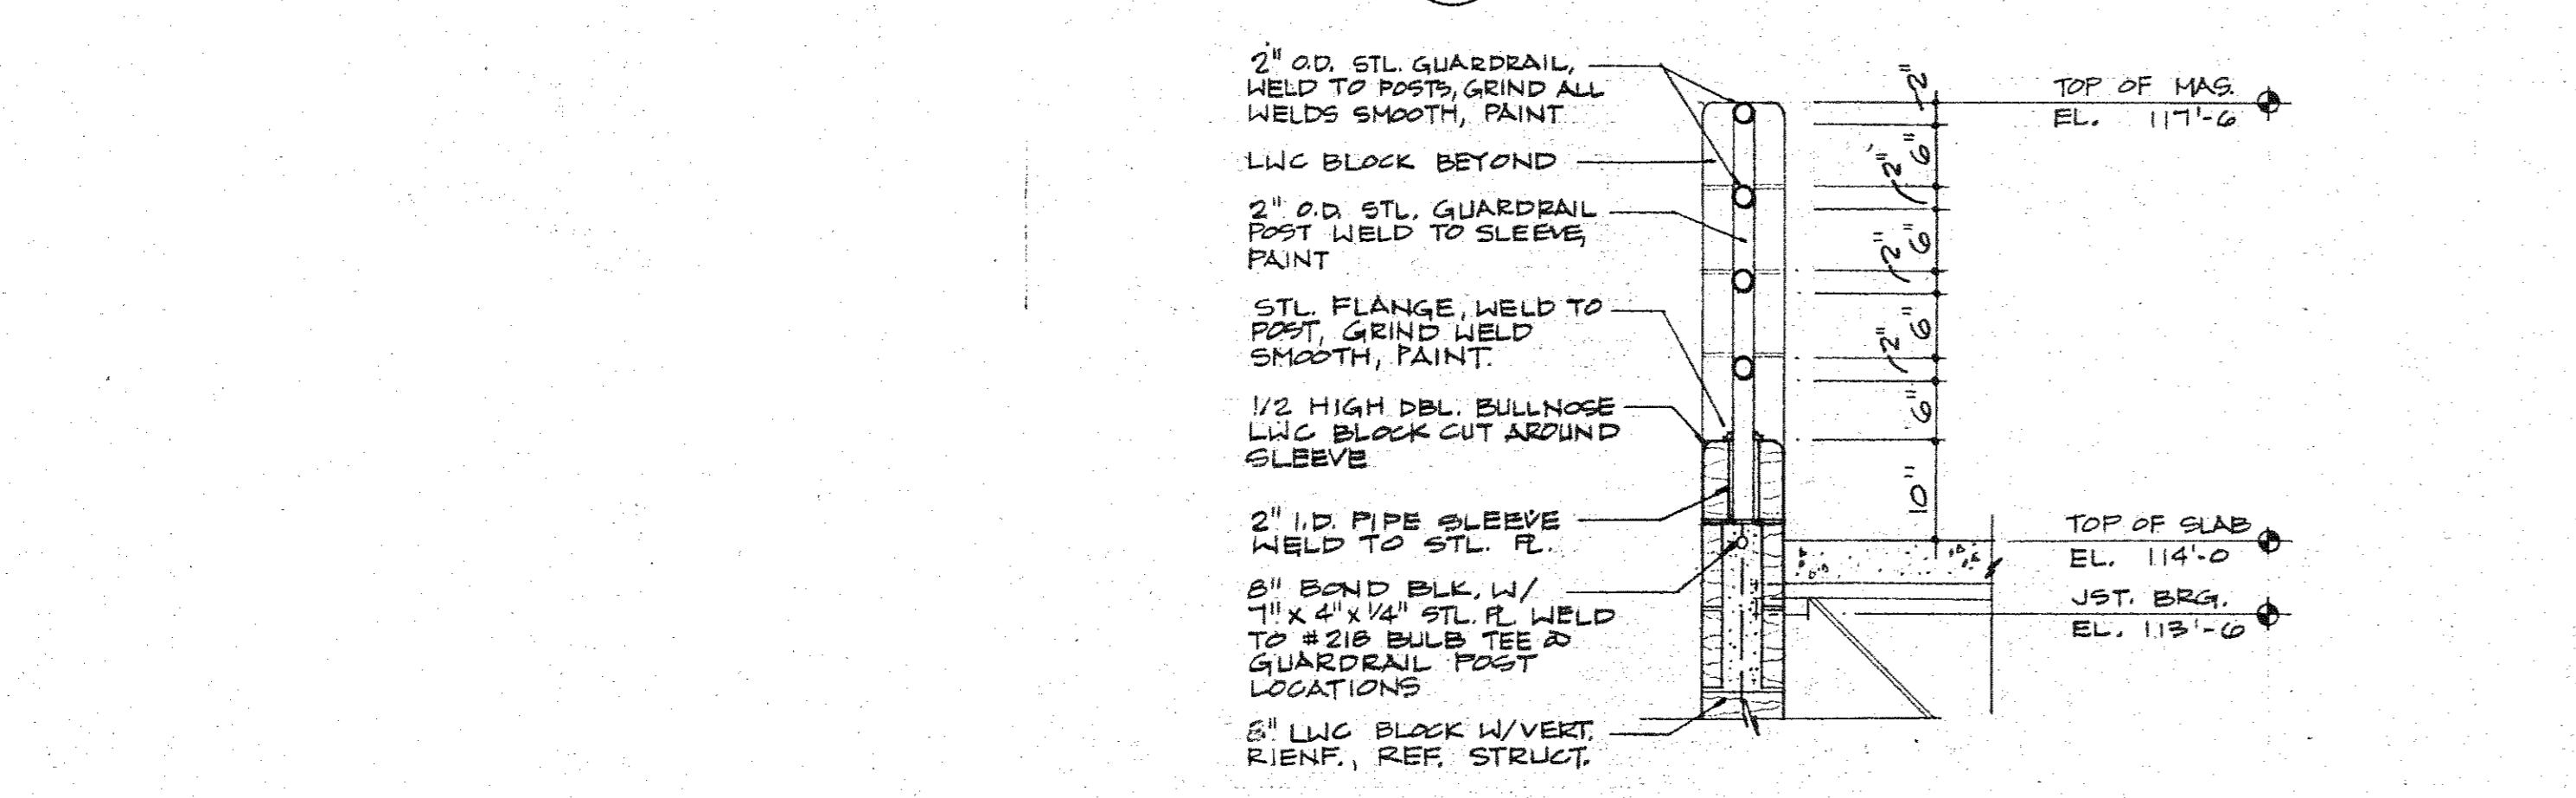 2" O.D. STL. GUARDRAIL,
WELD TO POSTS, GRIND ALL
WELDS SMOOTH, PAINT
LWC BLOCK BEYOND
2" O.D. STL. GUARDRAIL
POST WELD TO SLEEVE,
PAINT
STL. FLANGE, WELD TO
POST, GRIND WELD
SMOOTH, PAINT.
1/2 HIGH DBL. BULLNOSE
LWC BLOCK CUT AROUND
SLEEVE
2" I.D. PIPE SLEEVE
WELD TO STL. PL.
8" BOND BLK. W/
7" X 4" X 1/4" STL. PL WELD
TO #218 BULB TEE @
GUARDRAIL POST
LOCATIONS
8" LWC BLOCK W/VERT.
RIENF., REF. STRUCT.
2"
6"
2"
6"
2"
6"
2"
6"
10"
TOP OF MAS.
EL. 117'-6
TOP OF SLAB
EL. 114'-0
JST. BRG.
EL. 113'-6